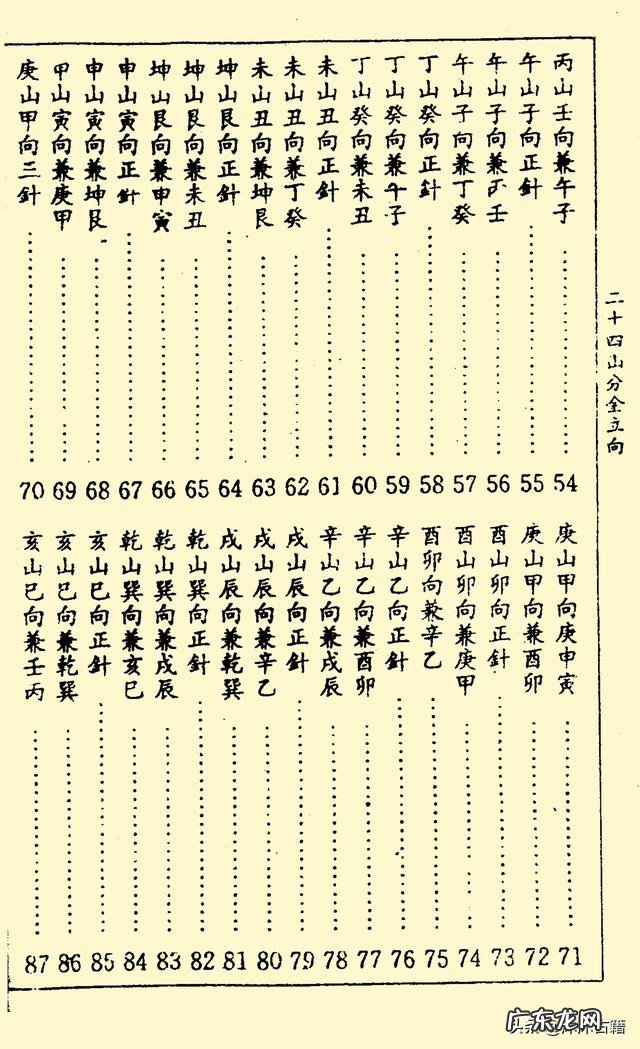 二十四山分全立向
丙山壬向兼午子……54
午山子向正針……55
午山子向兼丙壬……56
午山子向兼丁癸……57
丁山癸向正針……58
丁山癸向兼午子……59
丁山癸向兼未丑……60
未山丑向正針……61
未山丑向兼丁癸……62
未山丑向兼坤艮……63
坤山艮向正針……64
坤山艮向兼未丑……65
坤山艮向兼申寅……66
申山寅向正針……67
申山寅向兼坤艮……68
甲山寅向兼庚甲……69
庚山甲向三針……70
庚山甲向庚申寅……71
庚山甲向兼酉卯……72
酉山卯向正針……73
酉山卯向兼庚甲……74
酉卯向兼辛乙……75
辛山乙向正針……76
辛山乙向兼酉卯……77
辛山乙向兼戌辰……78
戌山辰向正針……79
戌山辰向兼辛乙……80
戌山辰向兼乾巽……81
乾山巽向正針……82
乾山巽向兼戌辰……83
乾山巽向兼亥巳……84
亥山巳向正針……85
亥山巳向兼乾巽……86
亥山巳向兼壬丙……87
广东龙网
古籍